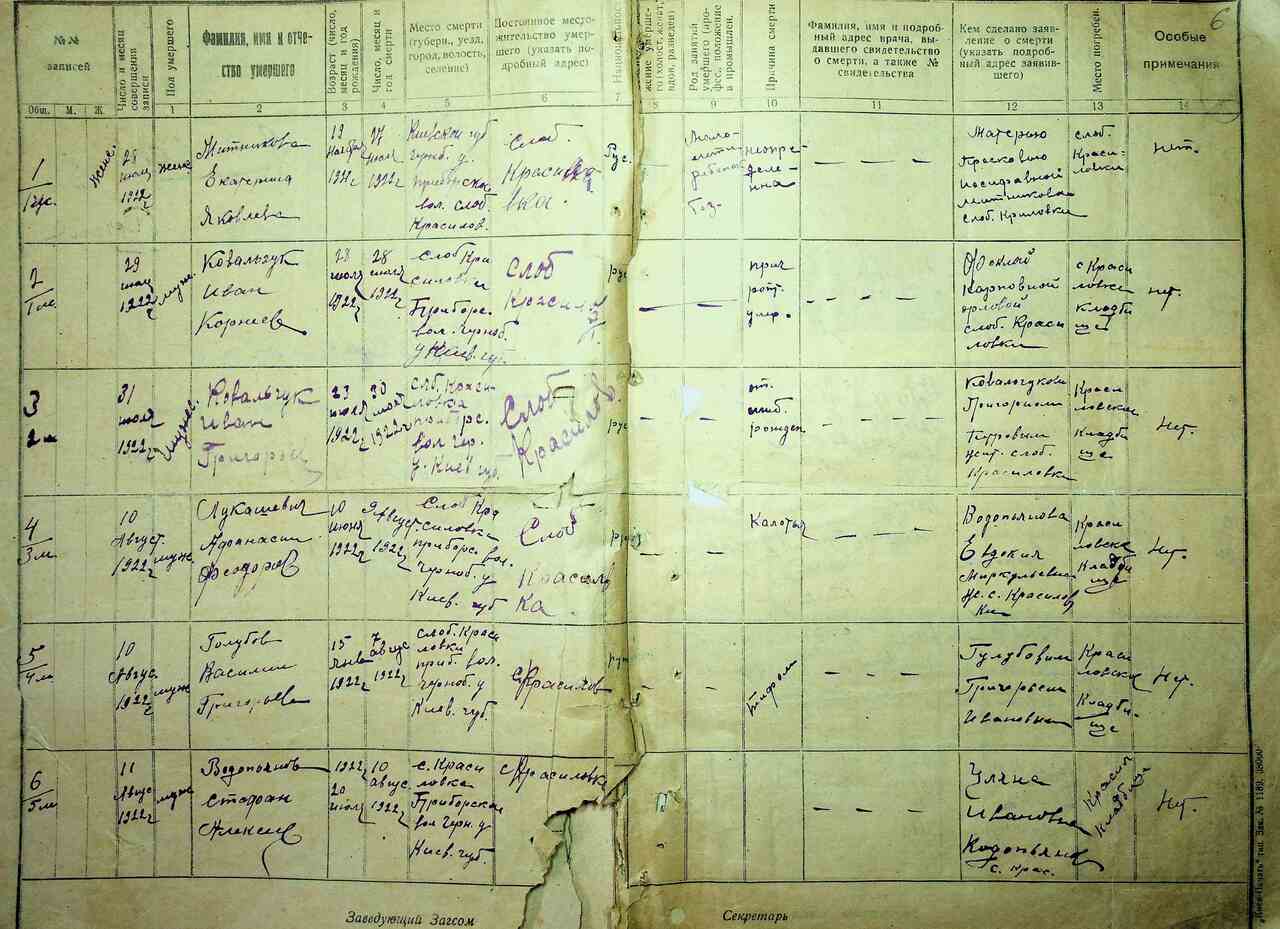 6
№№
записей
Общ. М. Ж.
Число и месяц
совершения
записи
Пол умершего
1
Фамилия, имя и отче-
ство умершего
2
Возраст (число,
месяц и год
рождения)
3
Число, месяц и
год смерти
4
Место смерти
(губерн., уезд,
город, волость,
селение)
5
Постоянное место-
жительство умер-
шего (указать по-
дробный адрес)
6
Национальнос
7
жение умерше-
го (холост, женат,
вдов, разведен)
8
Род занятий
умершего (про-
фес., положение
в промышлен.
9
Причина смерти
10
Фамилия, имя и подроб-
ный адрес врача, вы-
давшего свидетельство
о смерти, а также №
свидетельства
11
Кем сделано заяв-
ление о смерти
(указать подроб-
ный адрес заявив-
шего)
12
Место погребен.
13
Особые
примечания
14
1
женс.
28
июля
1922
женс
Митникова
Екатерина
Яковлева
19
ноября
1921 г
27
июля
1922 г
Киевской губ
черноб. у.
приборской
вол. слоб.
Красилов.
Слоб.
Красило
вка.
Рус.
Мало-
ребенок
неопре
деле-
нна
Матерью
Иосифовной
Митникова
слоб.
слоб.
Краси-
ловки
Нет.
2
1 м
29
1922 г
муж.
Ковальчук
Иван
Корнеев
28
июля
1922 г
28
июля
1922 г
Слоб Кра
силовки
Приборс.
вол. черноб.
у Киев. губ.
Слоб
рус
при
умер.
Карповной
орловой
слоб. Краси
ловки
с Краси
ловка
кладби
ще
Нет.
3
2 м
31
июля
1922 г
мужес.
Ковальчук
Иван
Григорьев
23
июля
1922 г
30
июля
1922 г
слоб. Краси-
ловка
приборс.
вол чер.
у. Киев губ.
Слоб
Красилов.
рус
от.
рожден
Ковальчуком
Григорием
Петровым
жит. слоб.
Красиловка
Краси
ловское
Кладби
ще
Нет.
4
3 м
10
Август.
1922 г
муже
Лукашевич
Афанасий
Феодоров
10
июня
1922 г
9 Август.
1922 г
Слоб Кра
силовка
приборс. вол.
черноб. у
Киев. губ
Слоб
Красилов
ка.
Водопьянова
Евдокия
Меркурьевна
ж. с. Красилов
ки
Краси
ловске
Кладби
ще
Нет.
5
4 м
10
Авгус.
1922 г
муже
Голубов
Василий
Григорьев
15
янва
1922 г
7
авгус
1922 г
слоб. Краси
ловки
приб. вол.
черноб. у
Киев. губ.
с Красилов
рус
тифом
Голубовым
Григорьем
Ивановым
Краси
ловское
Кладби-
ще
Нет.
6
5 м
11
Авгус
1922 г
муже
Водопьянов
Стефан
Алексеев
1922
20
июля
10
авгус.
1922 г
с. Краси
ловка
Приборской
вол черн. у
Киев. губ.
с Красиловка
Уляна
Ивановна
Водопьянов
с. Крас.
Красил
Кладби
Нет.
Заведующий Загсом
Секретарь
„Киев-Печать" тип. Зак. № 1189. 38000